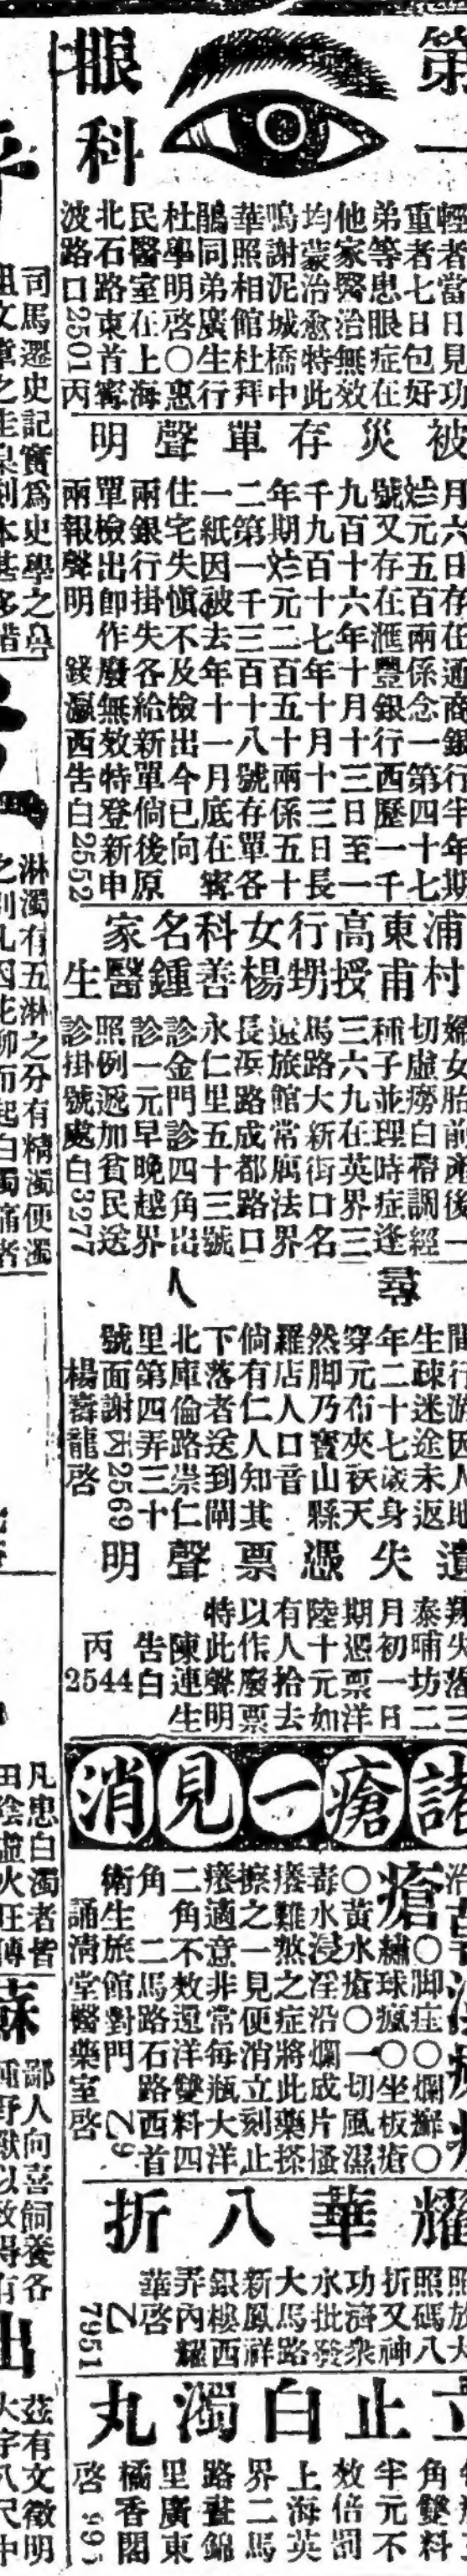 第一
眼科
輕者當日見功
重者七日包好
弟等患眼症在
他家醫治無效
均蒙治愈特此
鳴謝泥城橋中
華照相館杜拜
鵑同弟廣生行
杜學明啓○惠
民醫室在上海
北石路東首寗
波路口2501丙
被災存單聲明
月六日存在通商銀行半年期
元五百兩係念一第四十七
號又存在滙豐銀行西歷一千
九百十六年十月十三日至一
千九百十七年十月十三日長
年期元二百五十兩係五十
二第一千三百十八號存單各
一紙因被去年十一月底在寗
住宅失愼不及檢出今已向
兩銀行掛失各給新單倘後原
單檢出卽作廢無效特登新申
兩報聲明 西告白2552
浦東高行女科名家
村甫授甥楊善鍾醫生
婦女胎前產後一
切虛癆白帶調經
種子並理時症逢
三六九在英界三
馬路大新街口名
遠旅館常寓法界
長浜路成都路口
永仁里五十三號
診金門診四角出
診一元早晚越界
照例遞加貧民送
診掛號處白3277
尋人
間行游因人地
生疎迷途未返
年二十七歲身
穿元布夾襖天
然脚乃寶山縣
羅店人口音
倘有仁人知其
下落者送到閘
北庫倫路崇仁
里第四弄三十
號面謝丙2569
楊壽龍啓
遺失憑票聲明
翔失落三
泰晡坊二
月初一日
期憑票洋
陸十元如
有人拾去
以作廢票
特此聲明
陳連生
告白
丙2544
諸瘡一見消
瘡○脚疰○○爛○
○繡球瘋○○坐板瘡
○黃水瘡○一切風濕
毒水浸淫沿爛成片搔
癢難煞之症將此藥搽
擦之一見便消立刻止
癢適意非常每瓶大洋
二角不效還洋雙料四
角 二馬路石路西首
衛生旅館對門 乙9
誦清堂醫藥室啓
耀華八折
照放大
照碼八
折又神
功濟衆
水批發
大馬路
新鳳祥
銀樓西
弄內耀
華啓
乙7951
立止白濁丸
角雙料
半元不
效倍罰
上海英
界二馬
路晝錦
里廣東
橘香閣
啓
司馬遷史記實爲史學之
淋濁有五淋之分有精濁便濁
凡患白濁者皆
田陰虛火旺傳
蘇
鄙人向喜飼養各
茲有文徵明
大字八尺中